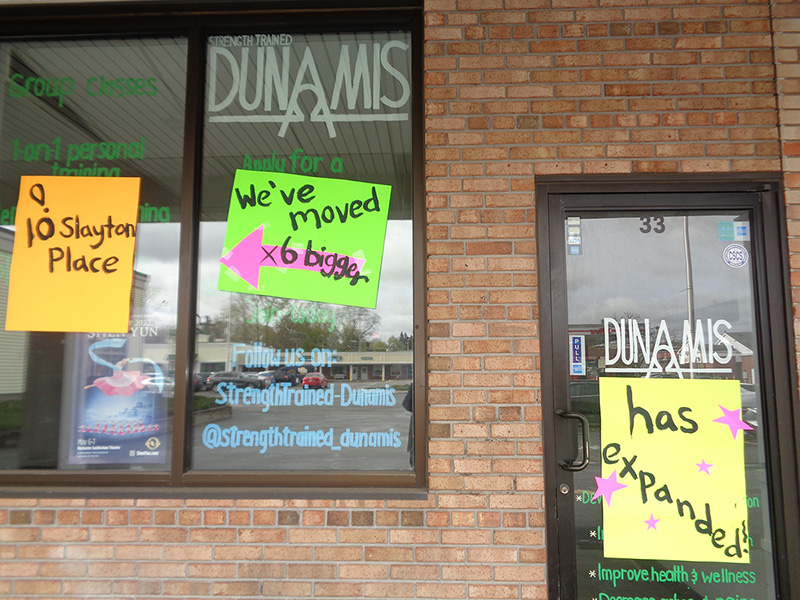 Group classes
1-on-1 personal
training
10 Slayton
Place
STRENGTH TRAINED
DUNAMIS
Apply for a
We've
moved
x6 bigger
Follow us on:
StrengthTrained-Dunamis
@strengthtrained_dunamis
SHEN YUN
May 6-7
33
CSCS
PULL
DUNAMIS
has
expanded!
*Improve health & wellness